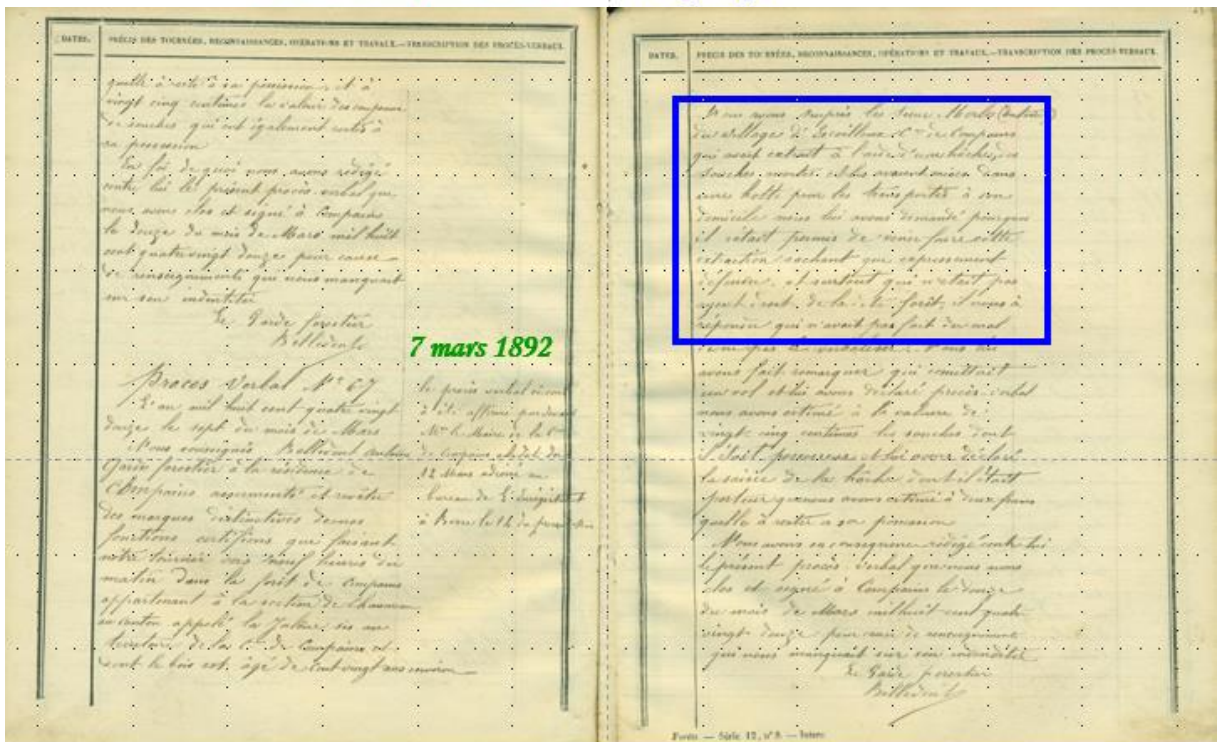 DATES. PRÉCIS DES TOURNÉES, RECONNAISSANCES, OPÉRATIONS ET TRAVAUX.—TRANSCRIPTION DES PROCÈS-VERBAUX.
quelle à resté à sa possession, et à
vingt cinq centimes la valeur des
de souches qui est également resté à
sa possession
En foi de quoi nous avons rédigé
contre lui le présent procès verbal que
nous avons clos et signé à Compains
le douze du mois de Mars mil huit
cent quatre vingt douze pour cause
de renseignements qui nous manquait
sur son indentiter
Le Garde forestier
Bellident
7 mars 1892
Procès Verbal N° 67
L'an mil huit cent quatre vingt
douze le sept du mois de Mars
Nous soussignés Bellident Antoine
Garde forestier à la résidence de
Compains assermenté et revêtu
des marques distinctives de nos
fonctions certifions que faisant
notre tournée vers neuf heures du
matin dans la forêt de Compains
appartenant à la section de
au canton appelé la sis au
territoire de la Cne de Compains et
dont le bois est âgé de cent vingt ans environ
le procès verbal
à été affirmé par devant
Mr le Maire de la Cne
de Compains
12 Mars
bureau de
à Besse le 14 du
DATES. PRÉCIS DES TOURNÉES, RECONNAISSANCES, OPÉRATIONS ET TRAVAUX.—TRANSCRIPTION DES PROCÈS-VERBAUX.
Nous avons surpris le sieur
du village de Cne de Compains
qui avait extrait à l'aide d'une hâche des
souches mortes et les avaient mises dans
une hotte pour les transportés à son
domicile nous lui avons demandé pourquoi
il s'était permis de venir faire cette
extraction sachant que expressement
défendu, et surtout qui n'etait pas
ayant droit de la dte forêt, il nous à
répondu qui n'avait pas fait du mal
de ne pas le verbaliser. Nous lui
avons fait remarquer qui comettait
un vol et lui avons déclaré procès verbal
nous avons estimé à la valeur de
vingt cinq centimes les souches dont
il était possesseur et lui avons déclaré
la saisie de la hâche dont il était
porteur que nous avons estimé à deux francs
quelle à restée a sa possession
Nous avons en consequence rédigé contre lui
le présent procès verbal que nous avons
clos et signé à Compains le douze
du mois de Mars mil huit cent quatre
vingt douze pour de renseignements
qui nous manquait sur son indentité
Le Garde forestier
Bellident
Forêts. — Série 12, n° 8. —